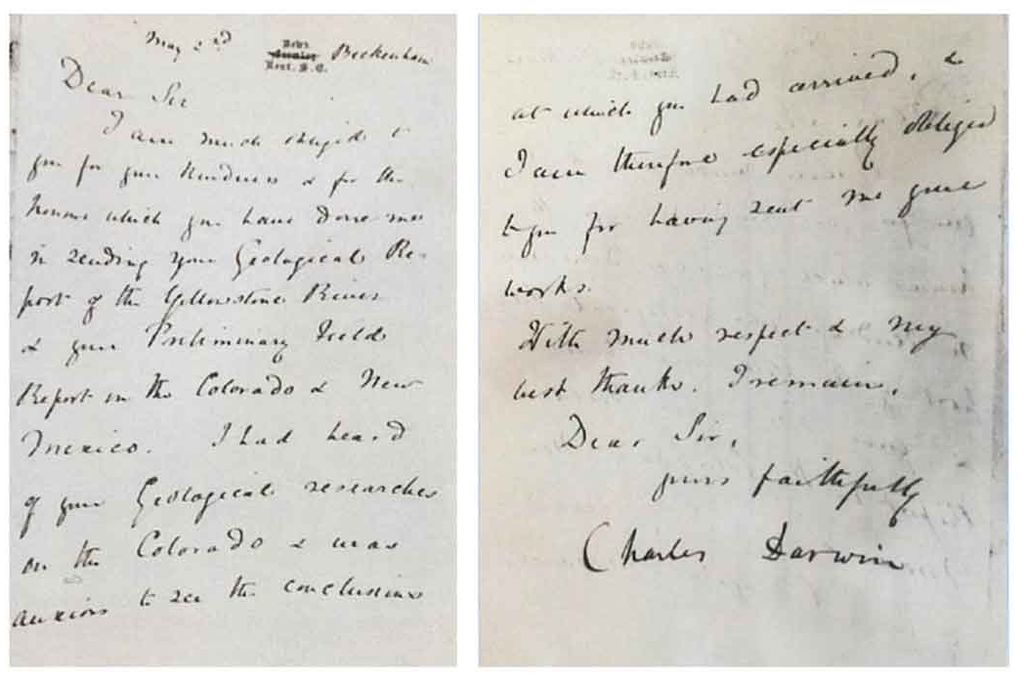 May 2nd
Down
Bromley
Kent. S.E.
Beckenham
Dear Sir
I am much obliged to
you for your kindness & for the
honour which you have done me
in sending your Geological Re-
port of the Yellowstone River
& your Preliminary Field
Report on the Colorado & New
Mexico. I had heard
of your Geological researches
on the Colorado & was
anxious to see the conclusions
at which you had arrived, &
I am therefore especially obliged
to you for having sent me your
works.
With much respect & my
best thanks. I remain,
Dear Sir,
yours faithfully
Charles Darwin